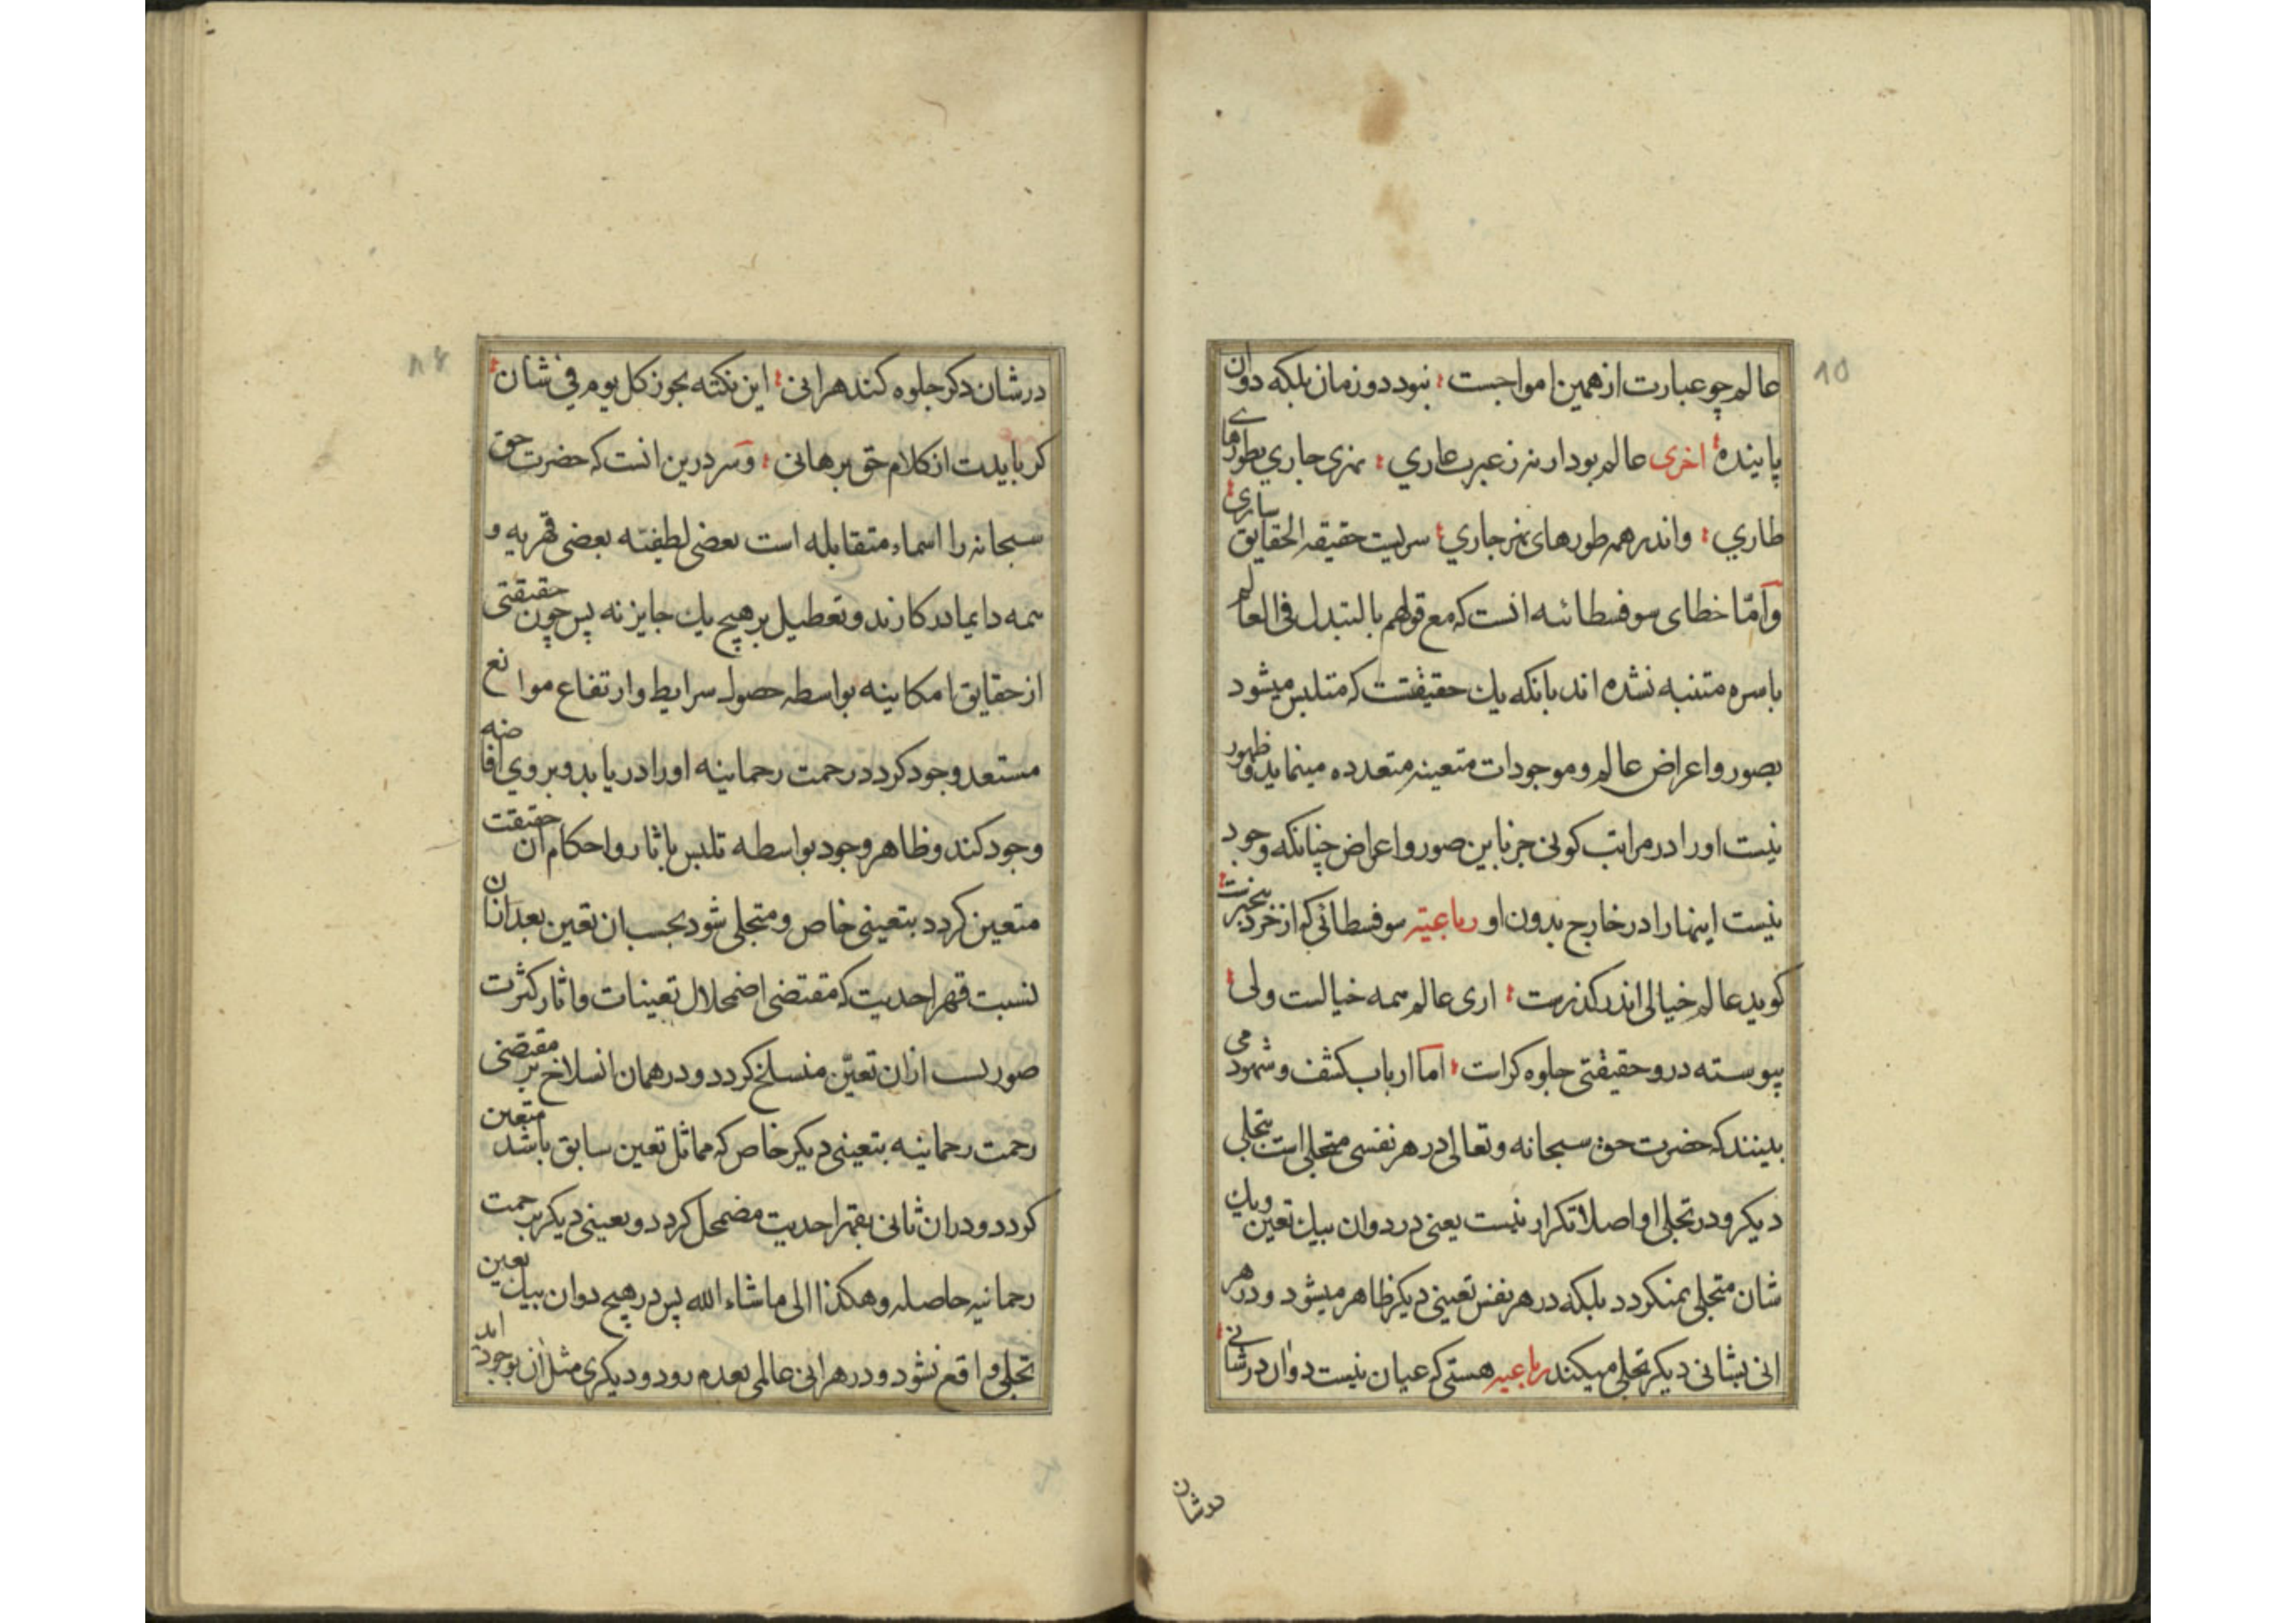 ۱۵
عالم چو عبارت از همین امواجست ؛ نبود دو زمان بلکه دو ان
پاینده ؛ اخری عالم بود ار نه ز عبرت عاری ؛ نهری جاری بطورهای
طاری ؛ واندر همه طورهای نهر جاری ؛ سریست حقیقة الحقایق ساری ؛
و امّا خطای سوفسطائیه انست که مع قولهم بالتبدل فی العالم
باسره متنبه نشده اند بانکه یك حقیقتست که متلبس میشود
بصور و اعراض عالم و موجودات متعینه متعدده مینماید و ظهور
نیست او را در مراتب کونی جز باین صور و اعراض چنانکه وجود
نیست اینها را در خارج بدون او رباعیه سوفسطائی که از خرد بیخبرست ؛
کوید عالم خیالی اندر کذرست ؛ اری عالم همه خیالست ولی ؛
پیوسته درو حقیقتی جلوه کراست ؛ اما ارباب کشف و شهود می
بینند که حضرت حق سبحانه و تعالی در هر نفسی متجلی است بتجلی
دیکر و در تجلی او اصلا تکرار نیست یعنی در دو ان بیك تعین و یك
شان متجلی نمیکردد بلکه در هر نفس تعینی دیکر ظاهر میشود و در هر
انی بشانی دیکر تجلی میکند رباعیه هستی که عیان نیست دو ان در شانی ؛
در شان
در شان دکر جلوه کند هر انی ؛ این نکته بجو ز کل یوم فی شان ؛
کر بایدت از کلام حق برهانی ؛ و سر درین انست که حضرت حق
سبحانه را اسماء متقابله است بعضی لطفیه بعضی قهریه و
همه دایما در کارند و تعطیل بر هیچ یك جایز نه پس چون حقیقتی
از حقایق امکانیه بواسطه حصول شرایط و ارتفاع موانع
مستعد وجود کردد رحمت رحمانیه او را دریابد و بر وی افاضه
وجود کند و ظاهر وجود بواسطه تلبس باثار و احکام ان حقیقت
متعین کردد بتعینی خاص و متجلی شود بحسب ان تعین بعد ازان
بسبب قهر احدیت که مقتضی اضمحلال تعینات و اثار کثرت
صوریست ازان تعیّن منسلخ کردد و در همان انسلاخ بر مقتضی
رحمت رحمانیه بتعینی دیکر خاص که مماثل تعین سابق باشد متعین
کردد و در ان ثانی بقهر احدیت مضمحل کردد و تعینی دیکر برحمت
رحمانیه حاصله و هکذا الی ماشاء الله پس در هیچ دو ان بیك تعین
تجلی واقع نشود و در هر انی عالمی بعدم رود و دیکری مثل ان بوجود اید